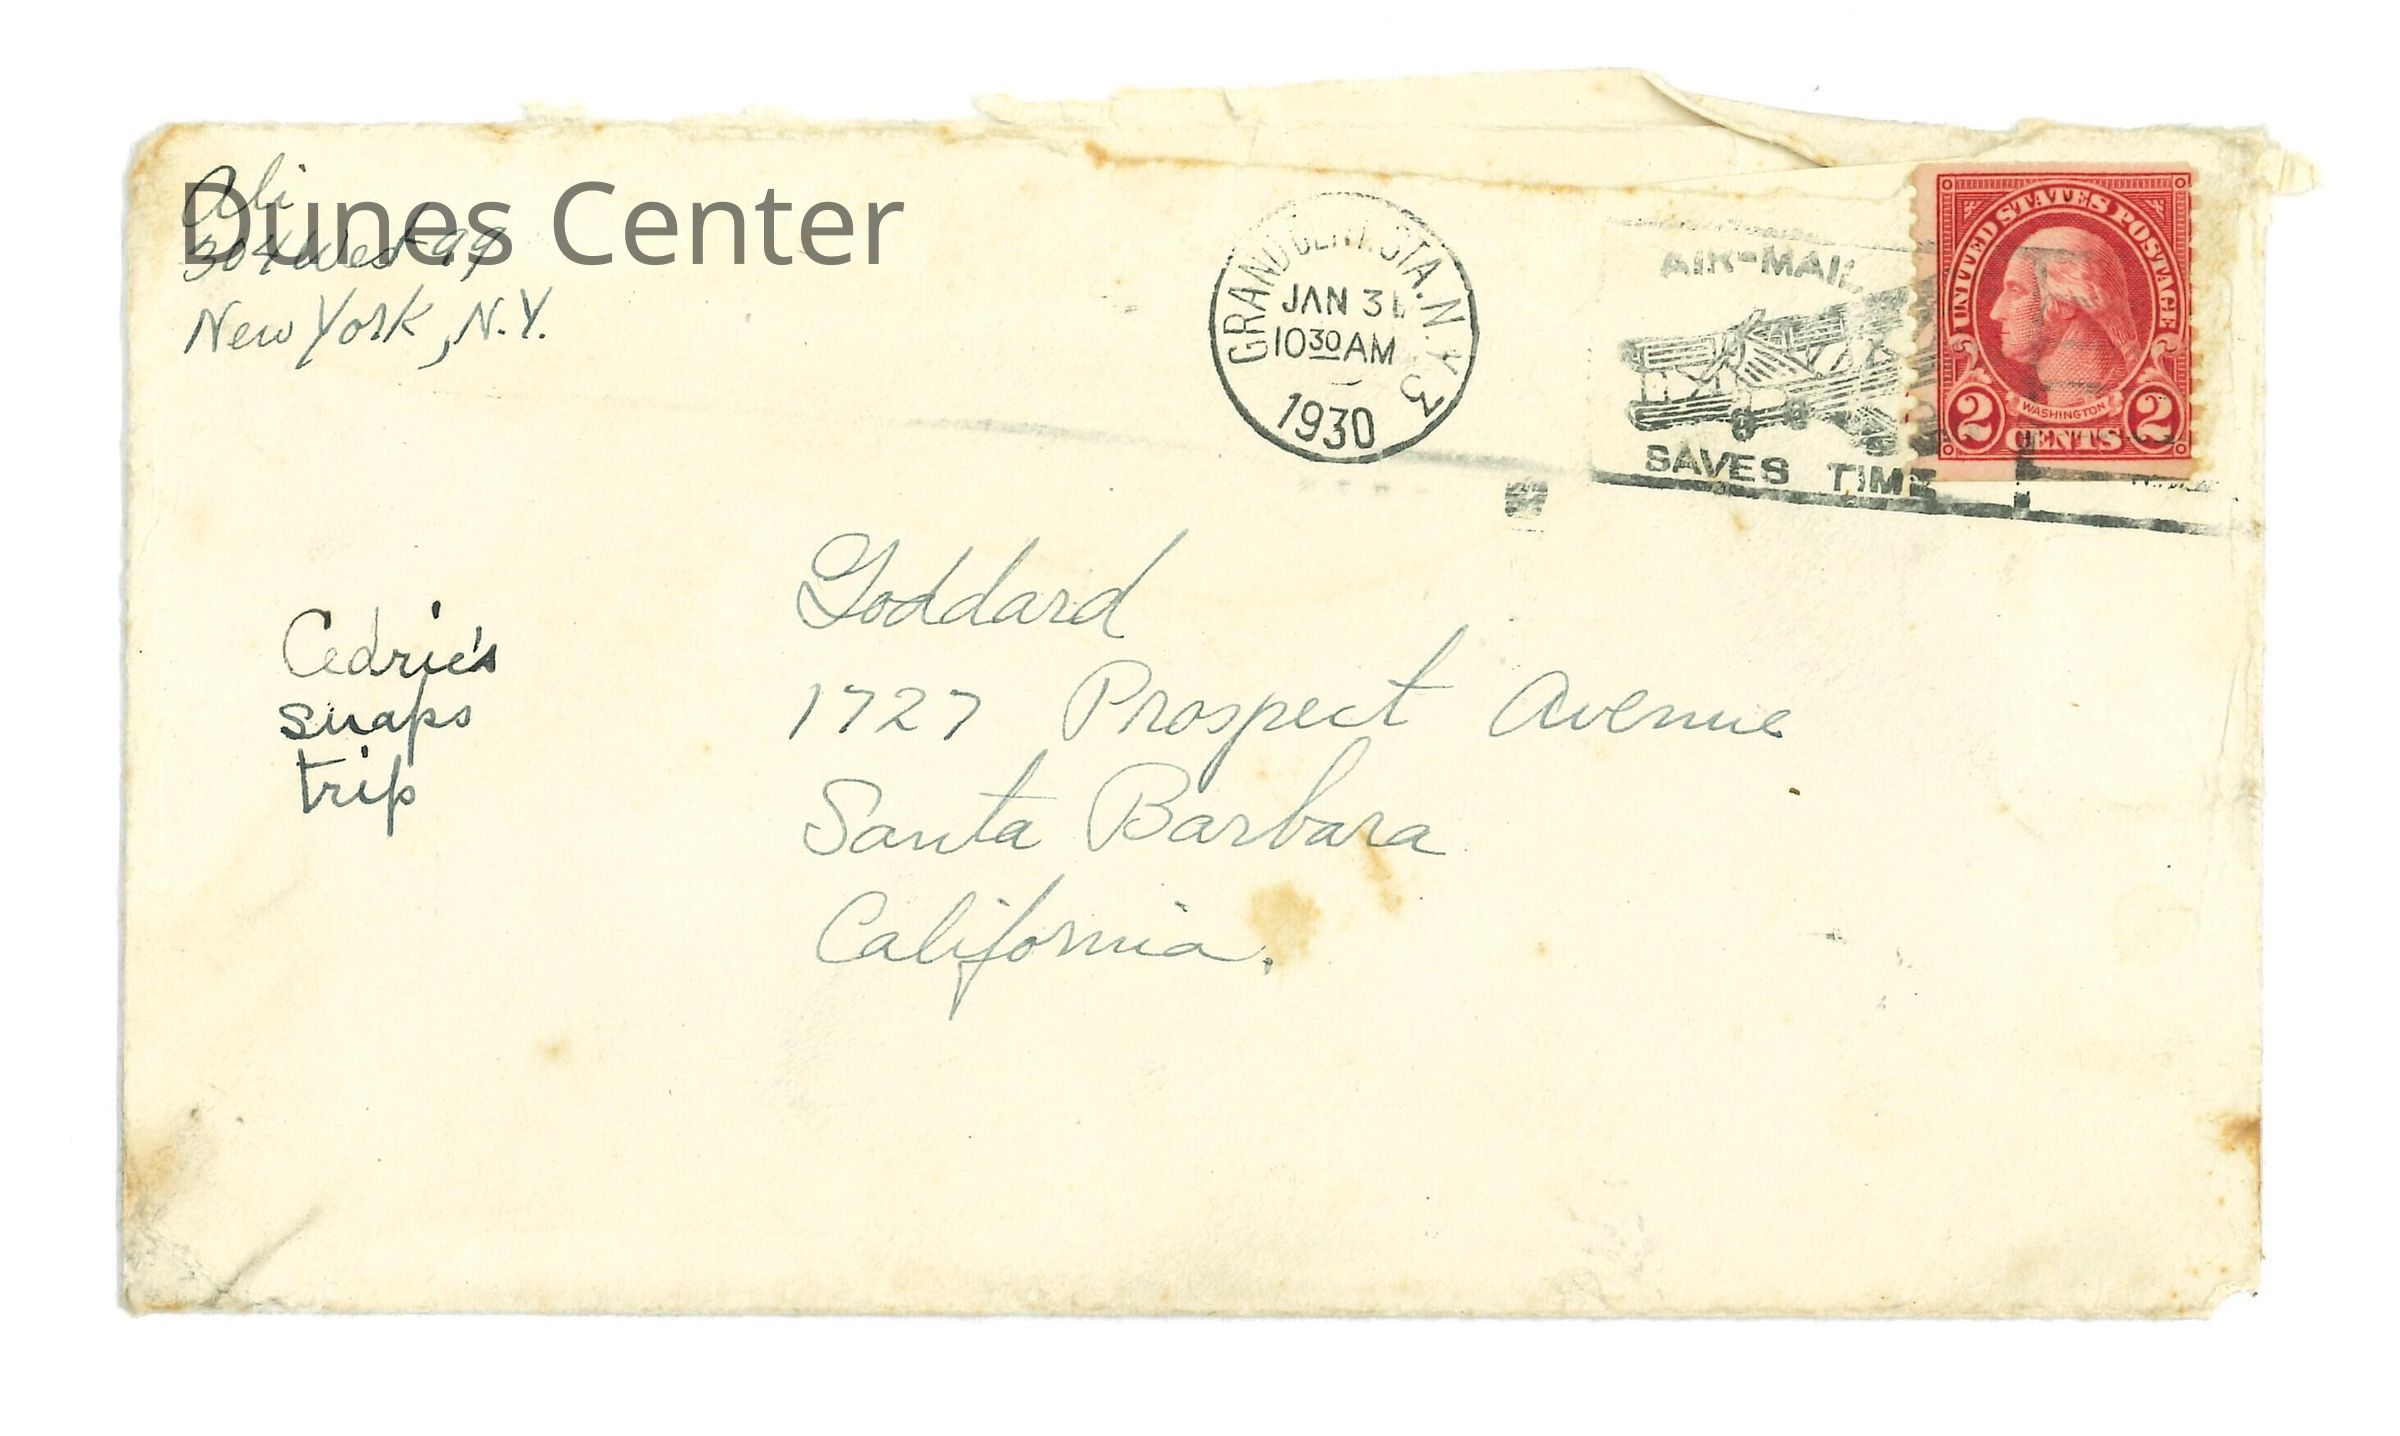 Ali
304 West 99
New York, N.Y.
Dunes Center
GRAND CENT. STA. N.Y. 3
JAN 31
10 30 AM
1930
AIR-MAIL
SAVES TIME
UNITED STATES POSTAGE
WASHINGTON
2 CENTS 2
Goddard
1727 Prospect Avenue
Santa Barbara
California.
Cedric's
snaps
trip